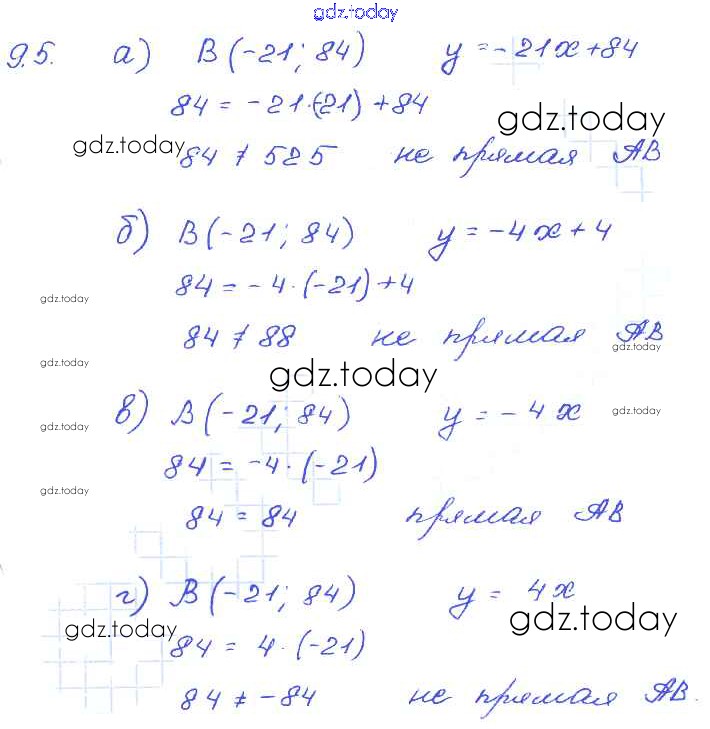 gdz.today
9.5. а) B(-21; 84) y = -21x+84
84 = -21·(-21)+84
gdz.today
gdz.today
84 ≠ 525 не прямая AB
б) B(-21; 84) y = -4x+4
84 = -4·(-21)+4
gdz.today
84 ≠ 88 не прямая AB
gdz.today
gdz.today
gdz.today
в) B(-21; 84) y = -4x
gdz.today
gdz.today
84 = -4·(-21)
gdz.today
84 = 84 прямая AB
г) B(-21; 84) y = 4x
gdz.today
gdz.today
84 = 4·(-21)
84 ≠ -84 не прямая AB.